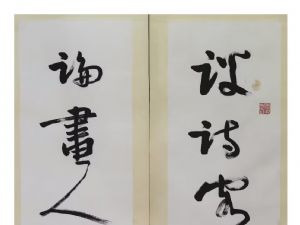 談詩客
論畫人